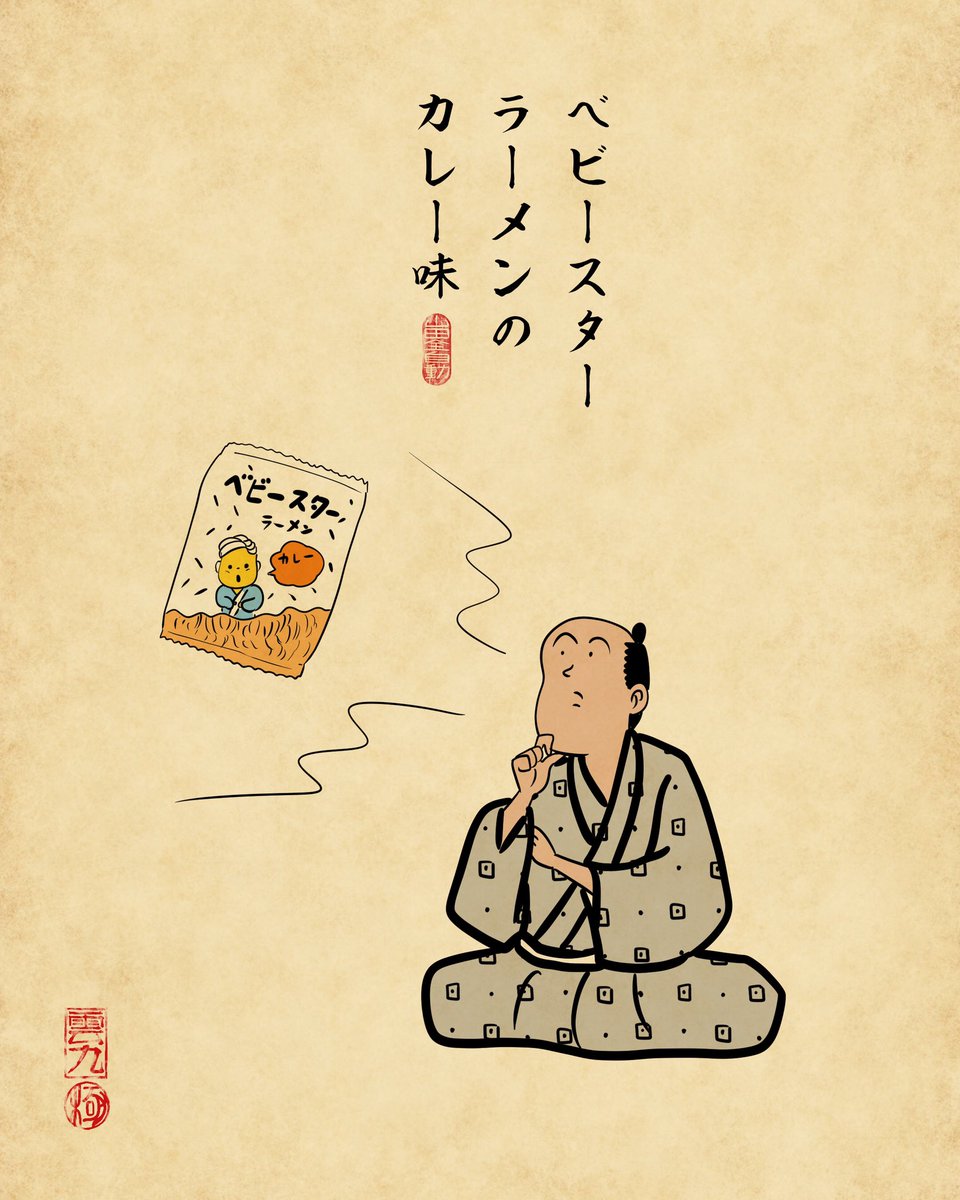 ベビースター
ラーメンの
カレー味
ベビースター
ラーメン
カレー
雲九
極